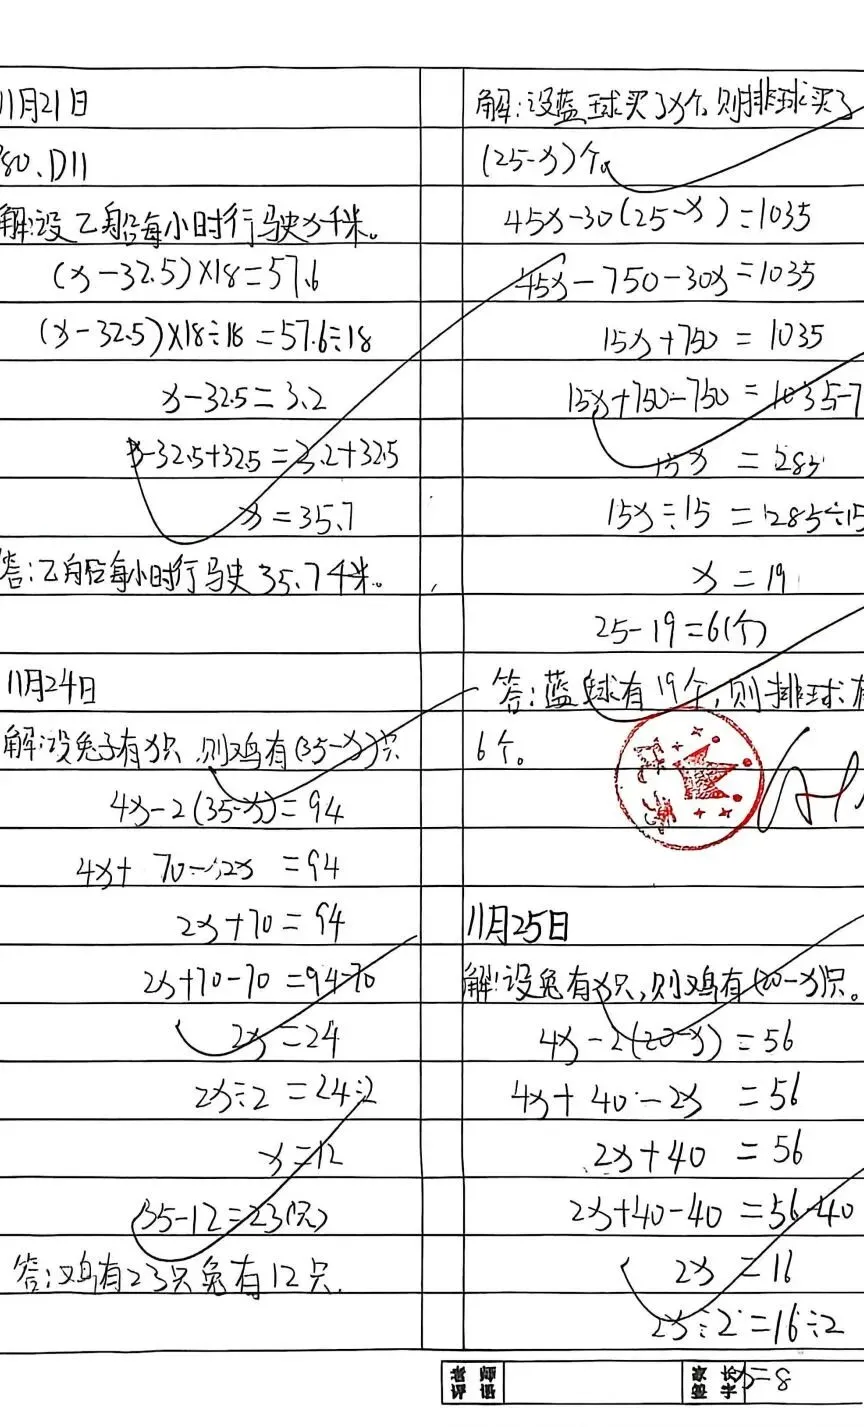 11月21日
80、D11
解:设乙船每小时行驶x千米。
(x-32.5)×18=57.6
(x-32.5)×18÷18=57.6÷18
x-32.5=3.2
x-32.5+32.5=3.2+32.5
x=35.7
答:乙船每小时行驶35.7千米。
11月24日
解:设兔子有x只,则鸡有(35-x)只
4x-2(35-x)=94
4x+70-2x=94
2x+70=94
2x+70-70=94-70
2x=24
2x÷2=24÷2
x=12
35-12=23(只)
答:鸡有23只兔有12只.
解:设蓝球买了x个,则排球买了
(25-x)个。
45x-30(25-x)=1035
45x-750-30x=1035
15x+750=1035
15x+750-750=1035-7
15x=285
15x÷15=285÷15
x=19
25-19=6(个)
答:蓝球有19个,则排球有
6个。
11月25日
解:设兔有x只,则鸡有(20-x)只。
4x-2(20-x)=56
4x+40-2x=56
2x+40=56
2x+40-40=56-40
2x=16
2x÷2=16÷2
x=8
老师评语
家长签字